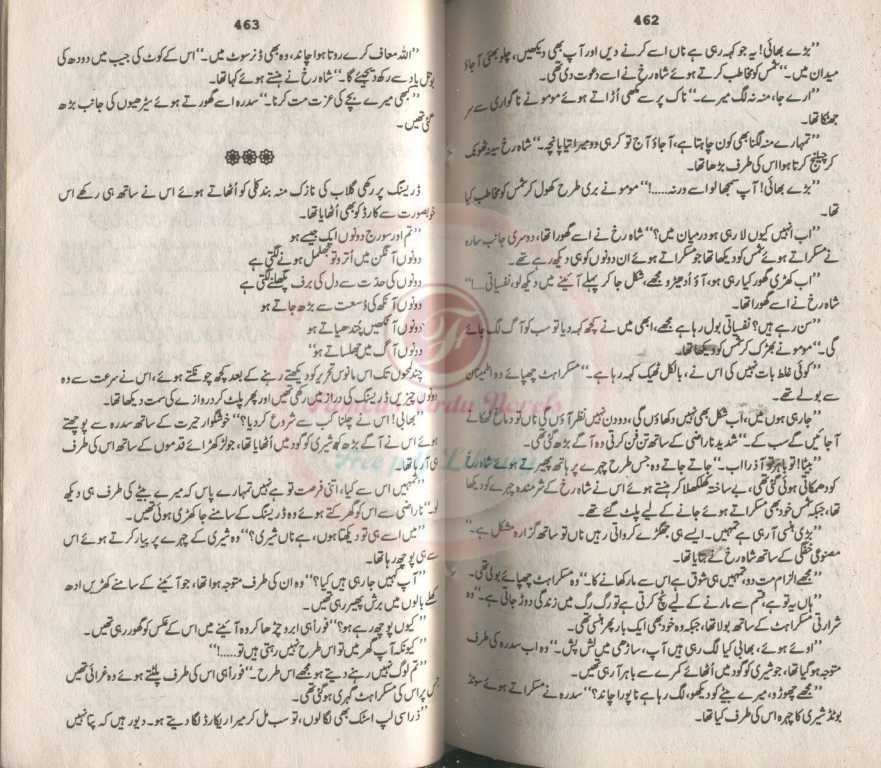 462
”بڑے بھائی! یہ جو کہہ رہی ہے ناں اسے کرنے دیں اور آپ بھی دیکھیں، چلو بھئی آ جاؤ
میدان میں۔“ شمس کو مخاطب کرتے ہوئے شاہ رخ نے اسے دعوت دی تھی۔
”ارے جا، منہ نہ لگ میرے۔“ ناک پر سے مکھی اُڑاتے ہوئے مومو نے ناگواری سے سر
جھٹکا تھا۔
”تمہارے منہ لگنا بھی کون چاہتا ہے، آ جاؤ آج تو کر ہی دو میرا تیا پانچہ۔“ شاہ رخ سینہ ٹھونک
کر چیلنج کرتا ہوا اس کی طرف بڑھا تھا۔
”بڑے بھائی! آپ سمجھا لو اسے ورنہ.....!“ مومو نے بری طرح کھول کر شمس کو مخاطب کیا
تھا۔
”اب انہیں کیوں لا رہی ہو درمیان میں؟“ شاہ رخ نے اسے گھورا تھا، دوسری جانب سارہ
نے مسکراتے ہوئے شمس کو دیکھا تھا جو مسکراتے ہوئے ان دونوں کو ہی دیکھ رہے تھے۔
”اب کھڑی گھور کیا رہی ہو، آؤ اُدھیڑو مجھے، شکل جا کر پہلے آئینے میں دیکھ لو، نفسیاتی...!“
شاہ رخ نے اسے گھورا تھا۔
”سن رہے ہیں؟ نفسیاتی بول رہا ہے مجھے، ابھی میں نے کچھ کہہ دیا تو سب کو آگ لگ جائے
گی۔“ مومو نے بھڑک کر شمس کو دیکھا تھا۔
”کوئی غلط بات نہیں کی اس نے، بالکل ٹھیک کہہ رہا ہے۔“ مسکراہٹ چھپائے وہ اطمینان
سے بولے تھے۔
”جا رہی ہوں میں، اب شکل بھی نہیں دکھاؤں گی، دو دن نہیں نظر آؤں گی ناں تو دماغ ٹھکانے
آ جائیں گے سب کے۔“ شدید ناراضی کے ساتھ تن فن کرتی وہ آگے بڑھ گئی تھی۔
”بیٹا! تو باہر تو آ ذرا اب۔“ جاتے جاتے وہ جس طرح چہرے پر ہاتھ پھیرتے ہوئے شاہ رخ
کو دھمکاتی ہوئی گئی تھی، بے ساختہ کھلکھلا کر ہنستے ہوئے اس نے شاہ رخ کے شرمندہ چہرے کو دیکھا
تھا، جبکہ شمس خود بھی مسکراتے ہوئے جانے کے لیے پلٹ گئے تھے۔
”بڑی ہنسی آ رہی ہے تمہیں۔ ایسے ہی جھگڑے کرواتی رہیں ناں تو ساتھ گزارہ مشکل ہے۔“
مصنوعی خفگی کے ساتھ شاہ رخ نے جتایا تھا۔
”مجھے الزام مت دو، تمہیں ہی شوق ہے اس سے مار کھانے کا۔“ وہ مسکراہٹ چھپائے بولی تھی۔
”ہاں یہ تو ہے، قسم سے مارنے کے لیے ٹچ کرتی ہے تو رگ رگ میں زندگی دوڑ جاتی ہے۔“ وہ
شرارتی مسکراہٹ کے ساتھ بولا تھا، جبکہ وہ خود بھی ایک بار پھر ہنسی تھی۔
”اوئے ہوئے، بھابی کیا لگ رہی ہیں آپ، ساڑھی میں لش پش۔“ وہ اب سدرہ کی طرف
متوجہ ہو گیا تھا، جو شیری کو گود میں اُٹھائے کمرے سے باہر آ رہی تھیں۔
”مجھے چھوڑو، میرے بیٹے کو دیکھو، لگ رہا ہے نا پورا چاند؟“ سدرہ نے مسکراتے ہوئے سوٹڈ
بوٹڈ شیری کا چہرہ اس کی طرف کیا تھا۔
463
”اللہ معاف کرے روتا ہوا چاند، وہ بھی ڈنر سوٹ میں۔“ اس کے کوٹ کی جیب میں دودھ کی
بوتل یاد سے رکھ دیجئے گا۔“ شاہ رخ نے ہنستے ہوئے کہا تھا۔
”کبھی میرے بچے کی عزت مت کرنا۔“ سدرہ اسے گھورتے ہوئے سیڑھیوں کی جانب بڑھ
گئی تھیں۔
ڈریسنگ پر رکھی گلاب کی نازک منہ بند کلی کو اُٹھاتے ہوئے اس نے ساتھ ہی رکھے اس
خوبصورت سے کارڈ کو بھی اُٹھایا تھا۔
”تم اور سورج دونوں ایک جیسے ہو
دونوں آنگن میں اُترو تو جھلمل ہونے لگتی ہے
دونوں کی حدت سے دل کی برف پگھلنے لگتی ہے
دونوں آنکھ کی وُسعت سے بڑھ جاتے ہو
دونوں آنکھیں چُندھیاتے ہو
دونوں آگ میں جھلساتے ہو“
چند لمحوں تک اس مانوس تحریر کو دیکھتے رہنے کے بعد کچھ چونکتے ہوئے، اس نے سرعت سے وہ
دونوں چیزیں ڈریسنگ کی دراز میں رکھی تھیں اور پھر پلٹ کر دروازے کی سمت دیکھا تھا۔
”بھابی! اس نے چلنا کب سے شروع کر دیا؟“ خوشگوار حیرت کے ساتھ سدرہ سے پوچھتے
ہوئے اس نے آگے بڑھ کر شیری کو گود میں اُٹھایا تھا، جو لڑکھڑاتے قدموں کے ساتھ اس کی طرف
ہی آ رہا تھا۔
”تمہیں اس سے کیا، اتنی فرصت تو ہے نہیں تمہارے پاس کہ میرے بیٹے کی طرف ہی دیکھ
لو۔“ ناراضی سے اس کو گھرکتے ہوئے وہ ڈریسنگ کے سامنے جا کھڑی ہوئی تھیں۔
”میں اسے ہی تو دیکھتا ہوں، ہے ناں شیری؟“ وہ شیری کے چہرے پر پیار کرتے ہوئے اس
سے ہی پوچھ رہا تھا۔
”آپ کہیں جا رہی ہیں کیا؟“ وہ ان کی طرف متوجہ ہوا تھا، جو آئینے کے سامنے کھڑیں ادھ
کھلے بالوں میں برش پھیر رہی تھیں۔
”کیوں پوچھ رہے ہو؟“ فوراً ہی ابرو چڑھا کر وہ آئینے میں اس کے عکس کو گھور رہی تھیں۔
”کیونکہ آپ گھر میں تو اس طرح نہیں رہتی ہیں تو.....!“
”تم لوگ نہیں رہنے دیتے ہو مجھے اس طرح۔“ فوراً ہی اس کی طرف پلٹتے ہوئے وہ غرائی تھیں
جس پر اس کی مسکراہٹ گہری ہو گئی تھی۔
”ذرا سی لپ اسٹک بھی لگا لوں، تو سب مل کر میرا ریکارڈ لگا دیتے ہو۔ دیور ہیں کہ پتا نہیں
Famous Urdu Novels
Free pdf Library